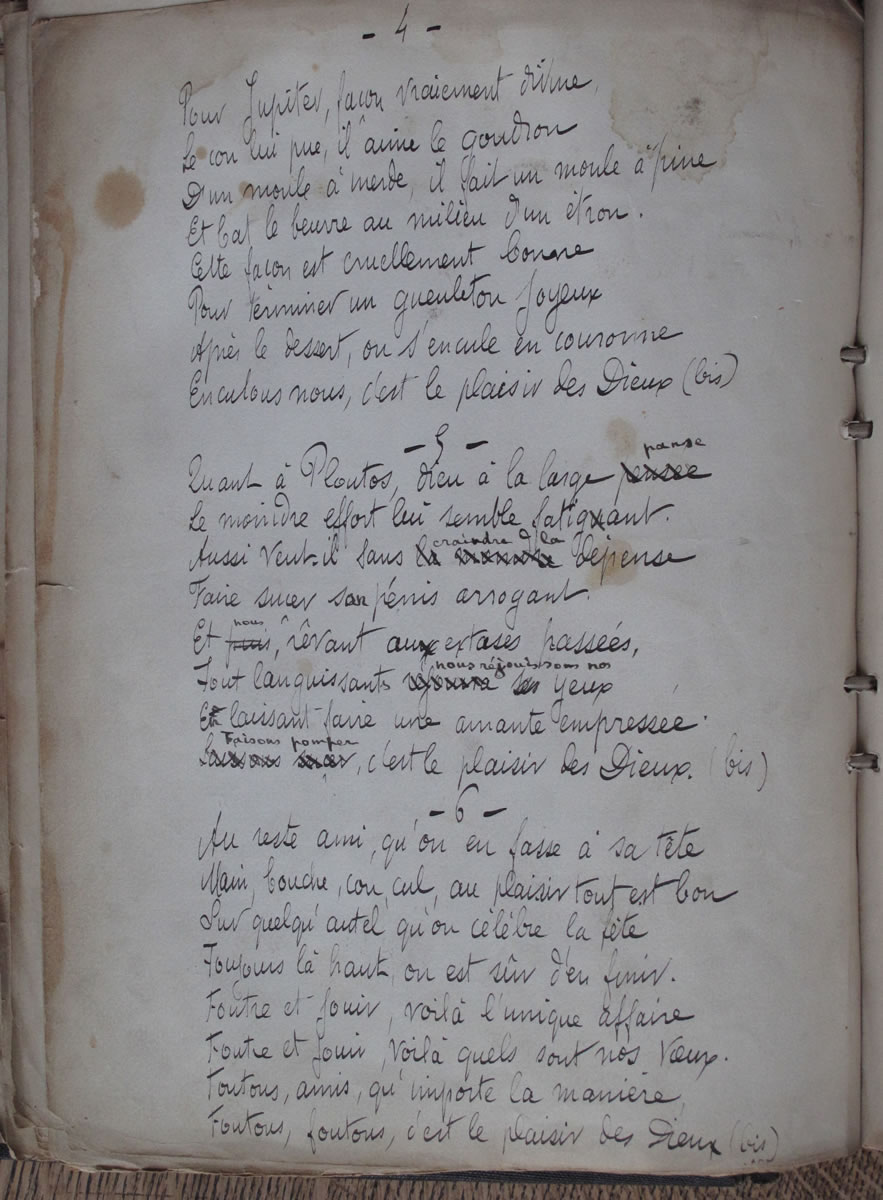 - 4 -
Pour Jupiter, façon vraiement divine,
Le con lui pue, il aime le goudron
D'un moule à merde, il fait un moule à pine
Et bat le beurre au milieu d'un étron.
Cette façon est cruellement bonne
Pour terminer un gueuleton joyeux
Après le dessert, on s'encule en couronne
Enculons nous, c'est le plaisir des Dieux (bis)
- 5 -
panse
Quant à Ploutos, dieu à la large pensee
Le moindre effort lui semble fatiguant.
craindre d la
Aussi veut-il sans la moindre dépense
Faire sucer son pénis arrogant.
nous
Et puis, rêvant aux extases passées,
nous réjouissons nos
Tout languissants yeux
Et laissant faire une amante empressée.
Faisons pomper
Laissons sucer, c'est le plaisir des Dieux. (bis)
- 6 -
Au reste ami, qu'on en fasse à sa tête
Main, bouche, con, cul, au plaisir tout est bon
Sur quelqu'autel qu'on célèbre la fête
Toujours là haut, on est sûr d'en finir.
Foutre et jouir, voilà l'unique affaire
Foutre et jouir, voilà quels sont nos vœux.
Foutons, amis, qu'importe la manière,
Foutons, foutons, c'est le plaisir des Dieux (bis)